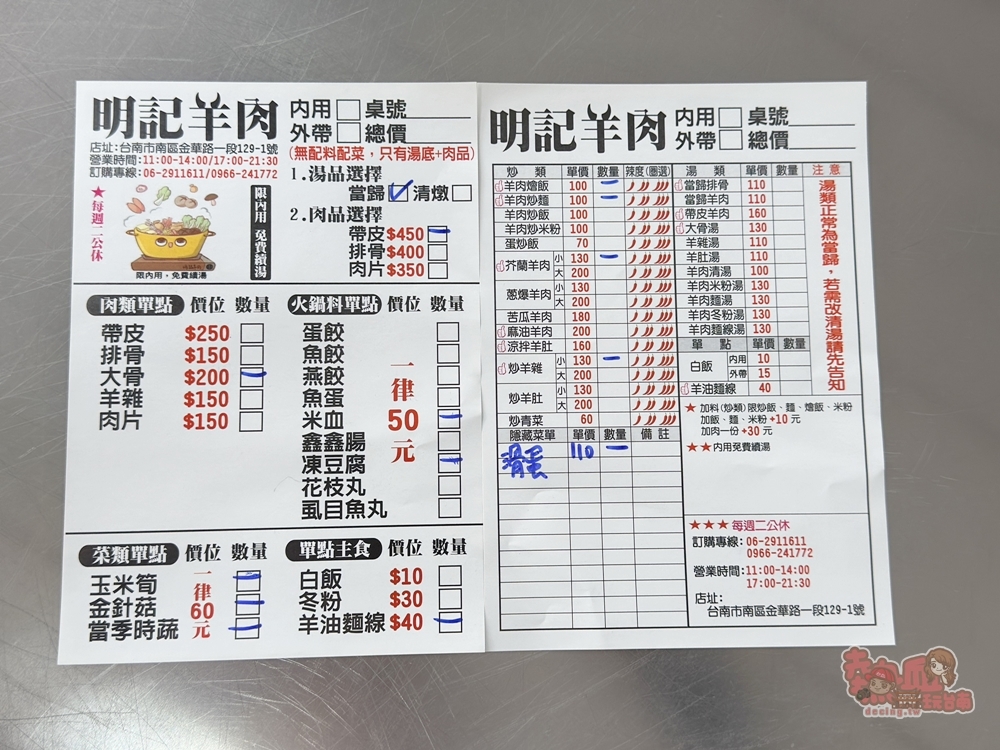 明記羊肉
內用 桌號
外帶 總價
店址:台南市南區金華路一段129-1號
營業時間:11:00-14:00/17:00-21:30
訂購專線:06-2911611/0966-241772
(無配料配菜，只有湯底+肉品)
★每週二公休
限內用，免費續湯
限內用 免費續湯
1.湯品選擇
當歸 清燉
2.肉品選擇
帶皮$450
排骨$400
肉片$350
肉類單點 價位 數量
帶皮 $250
排骨 $150
大骨 $200
羊雜 $150
肉片 $150
火鍋料單點 價位 數量
蛋餃
魚餃
燕餃
魚蛋
米血
鑫鑫腸
凍豆腐
花枝丸
虱目魚丸
一律50元
菜類單點 價位 數量
玉米筍
金針菇
當季時蔬
一律60元
單點主食 價位 數量
白飯 $10
冬粉 $30
羊油麵線 $40
明記羊肉
內用 桌號
外帶 總價
炒類 單價 數量 辣度(圈選)
羊肉燴飯 100
羊肉炒麵 100
羊肉炒飯 100
羊肉炒米粉 100
蛋炒飯 70
芥蘭羊肉 小 130
大 200
蔥爆羊肉 小 130
大 200
苦瓜羊肉 180
麻油羊肉 200
涼拌羊肚 160
炒羊雜 小 130
大 200
炒羊肚 小 130
大 200
炒青菜 60
隱藏菜單 單價 數量 備註
滑蛋 110
湯類 單價 數量
當歸排骨 110
當歸羊肉 110
帶皮羊肉 160
大骨湯 130
羊雜湯 110
羊肚湯 110
羊肉清湯 100
羊肉米粉湯 130
羊肉麵湯 130
羊肉冬粉湯 130
羊肉麵線湯 130
單點 單價 數量
白飯 內用 10
外帶 15
羊油麵線 40
注意
湯類正常為當歸，若需改清湯請先告知
★ 加料(炒類)限炒飯、麵、燴飯、米粉
加飯、麵、米粉+10元
加肉一份+30元
★★內用免費續湯
★★★每週二公休
訂購專線:06-2911611
0966-241772
營業時間:11:00-14:00
17:00-21:30
店址:
台南市南區金華路一段129-1號
熱血玩台南
decing.tw